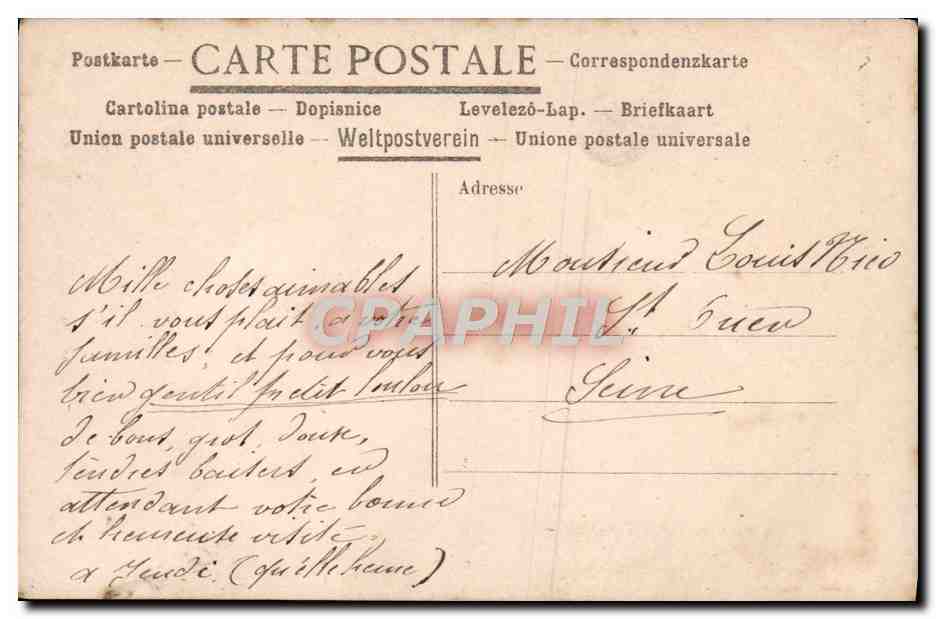 Postkarte — CARTE POSTALE — Correspondenzkarte
Cartolina postale — Dopisnice Levelezö-Lap. — Briefkaart
Union postale universelle — Weltpostverein — Unione postale universale
Adresse
Mille choses aimables
s'il vous plait, a votre
familles, et pour vous
bien gentil petit loulou
de bons, gros, doux,
tendres baisers, en
attendant votre bonne
et heureuse visite
a Jeudi. (qu'élle heure)
Monsieur Louis
St Ouen
Seine
CPAPHIL